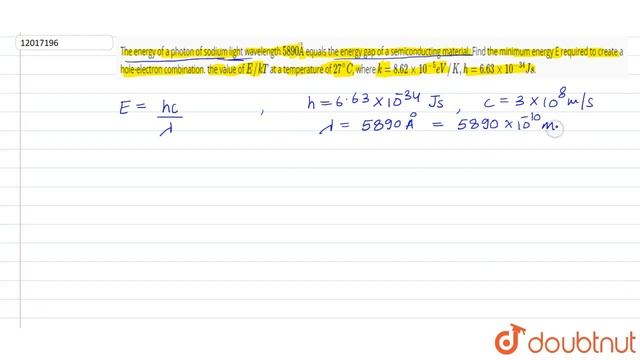 12017196
The energy of a photon of sodium light wavelength 5890Å equals the energy gap of a semiconducting material. Find the minimum energy E required to create a
hole-electron combination. the value of E/kT at a temperature of 27°C, where k = 8.62 × 10⁻⁵eV/K, h = 6.63 × 10⁻³⁴Js.
E = hc/λ , h = 6.63 × 10⁻³⁴ Js , c = 3 × 10⁸ m/s
λ = 5890 Å = 5890 × 10⁻¹⁰ m.
doubtnut